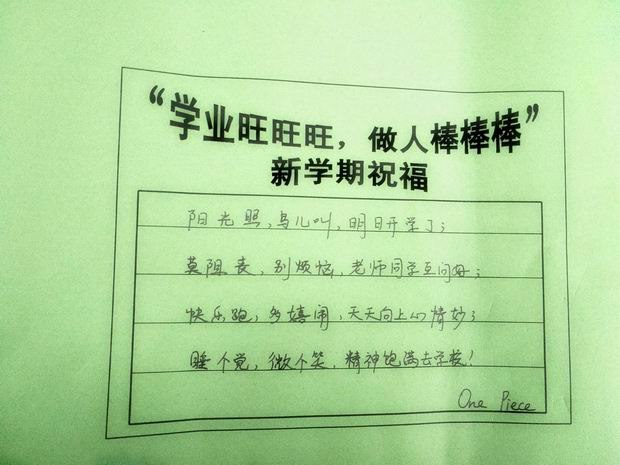 “学业旺旺旺，做人棒棒棒”
新学期祝福
阳光照，鸟儿叫，明日开学了；
莫沮丧，别烦恼，老师同学互问好；
快乐跑，多嬉闹，天天向上心情妙；
睡个觉，微个笑，精神饱满去学校！
One Piece